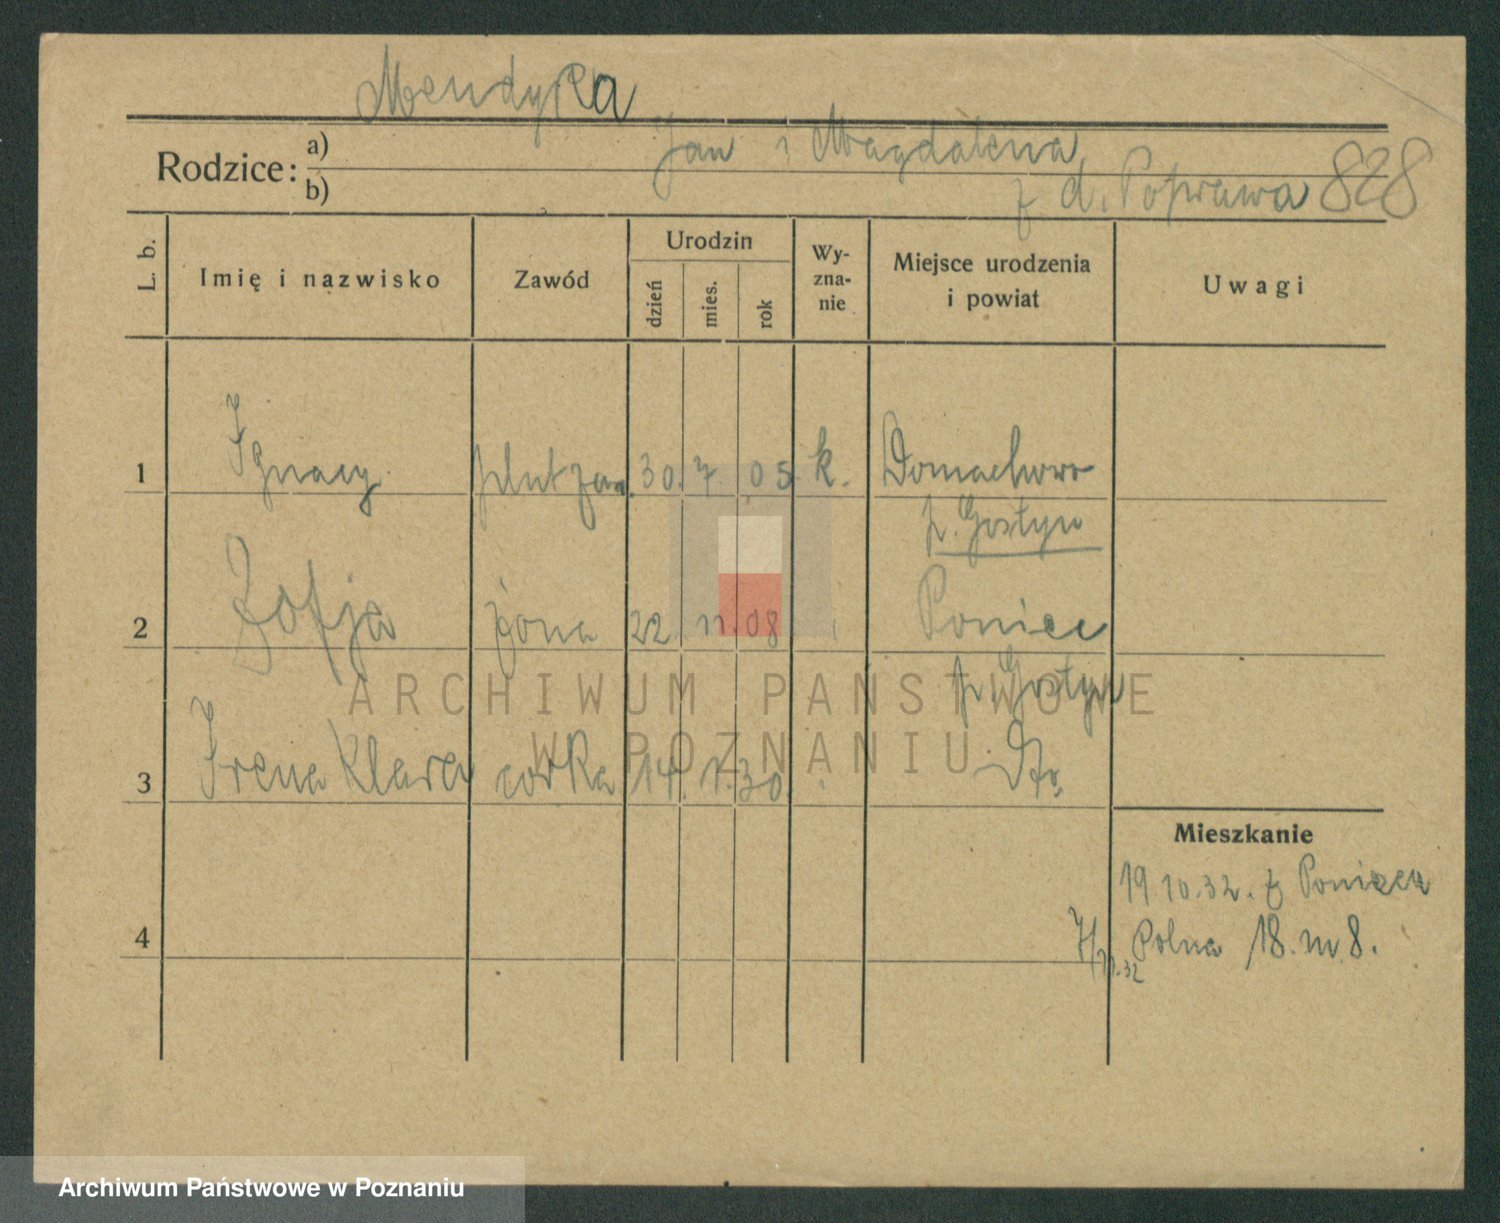 Mendyka
Rodzice: a) Jan i Magdalena
b) z d. Poprawa 828
L. b. Imię i nazwisko Zawód Urodzin dzień mies. rok Wy-zna-nie Miejsce urodzenia i powiat Uwagi
1 Ignacy plut zaw. 30. 7 05 k. Domachowo
p. Gostyń
2 Zofja żona 22 11. 08 Poniec
p. Gostyń
3 Irena Klara córka 14. 1. 30. Dto.
Mieszkanie
19 10. 32. z Ponieca
4 7/11. 32 Polna 18. m 8.
ARCHIWUM PAŃSTWOWE
W POZNANIU
Archiwum Państwowe w Poznaniu